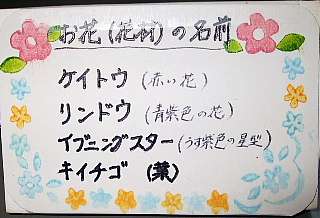 お花(花材)の名前
ケイトウ(赤い花)
リンドウ(青紫色の花)
イブニングスター(うす紫色の星型)
キイチゴ (葉)